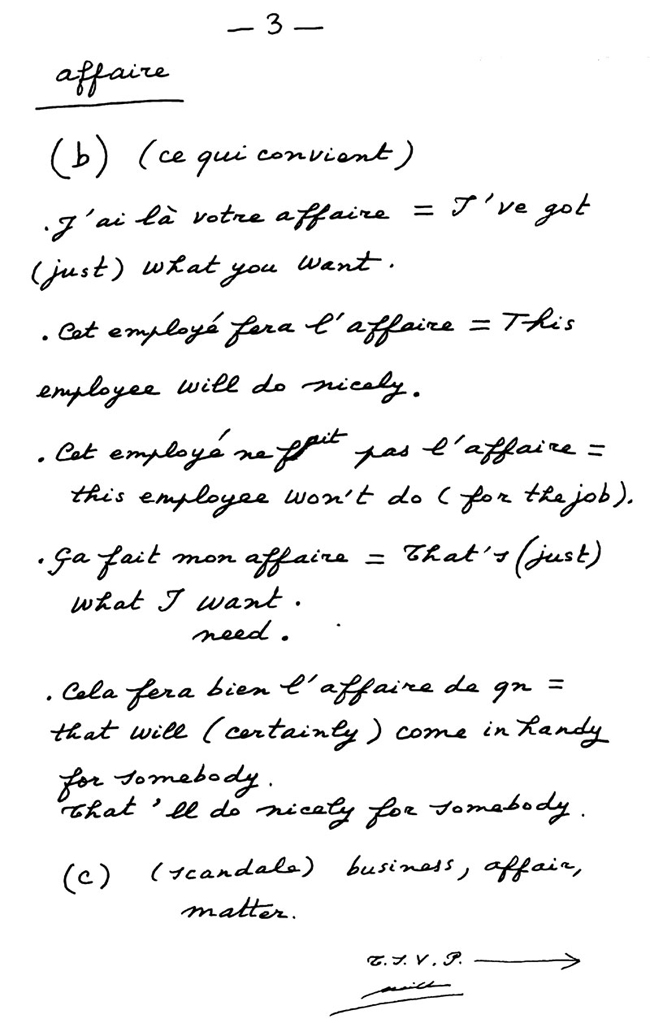 — 3 —
affaire
(b) (ce qui convient)
. J'ai là votre affaire = I've got
(just) what you want.
. Cet employé fera l'affaire = This
employee will do nicely.
. Cet employé ne fait pas l'affaire =
this employee won't do (for the job).
. Ça fait mon affaire = That's (just)
what I want.
need.
. Cela fera bien l'affaire de qn =
that will (certainly) come in handy
for somebody.
That'll do nicely for somebody.
(c) (scandale) business, affair,
matter.
T.S.V.P. ⟶